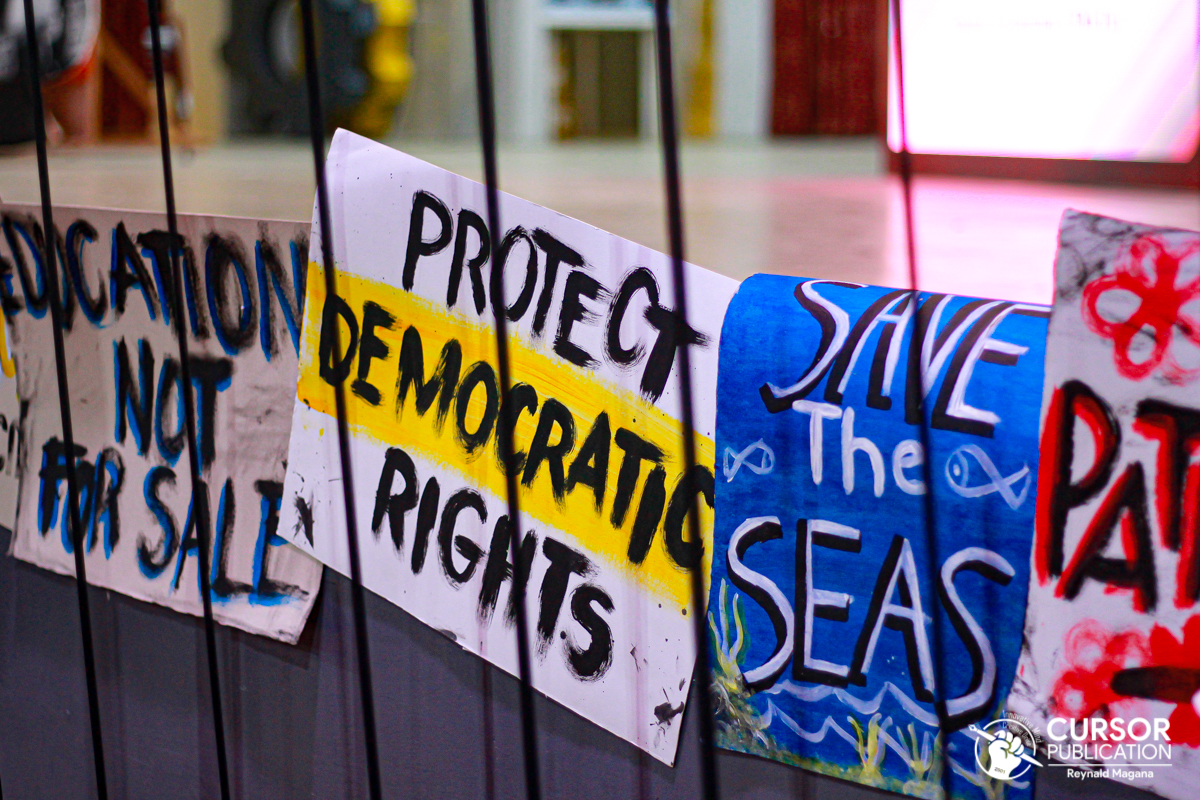 EDUCATION
NOT
FOR SALE
PROTECT
DEMOCRATIC
RIGHTS
SAVE
The
SEAS
CURSOR
PUBLICATION
Reynald Magana